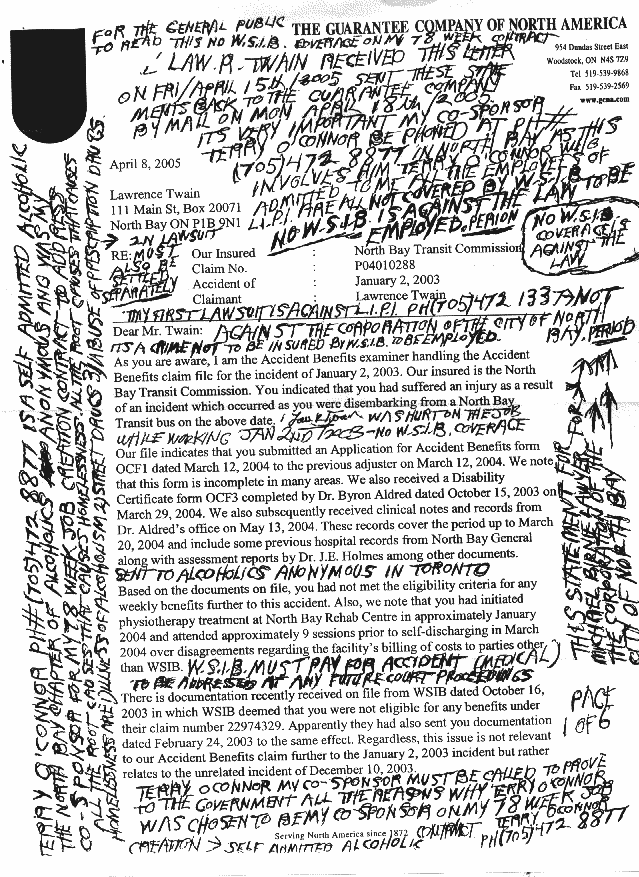 FOR THE GENERAL PUBLIC
THE GUARANTEE COMPANY OF NORTH AMERICA
TO READ THIS NO W.S.I.B. COVERAGE ON MY 78 WEEK CONTRACT
954 Dundas Street East
Woodstock, ON N4S 7Z9
Tel 519-539-9868
Fax 519-539-2569
www.gcna.com
I LAW.R. TWAIN RECEIVED THIS LETTER
ON FRI/APRIL 15th/2005 SENT THESE STATE
MENTS BACK TO THE GUARANTEE COMPANY
BY MAIL ON MON APRIL 18th/2005
ITS VERY IMPORTANT MY CO-SPONSOR
TERRY O'CONNOR BE PHONED AT PH#
(705)472 8877 IN NORTH BAY AS THIS
INVOLVES HIM TERRY O'CONNOR WHO
ADMITTED TO ME ALL THE EMPLOYEES OF
L.I.P.I. ARE ALL NOT COVERED BY W.S.I.B.
NO W.S.I.B. IS AGAINST THE LAW TO BE
EMPLOYED. PERIOD
NO W.S.I.B
COVERAGE IS
AGAINST THE
LAW
April 8, 2005
Lawrence Twain
111 Main St, Box 20071
North Bay ON P1B 9N1
2ND LAWSUIT
MUST
ALSO BE
SETTLED
SEPARATELY
RE: Our Insured : North Bay Transit Commission
Claim No. : P04010288
Accident of : January 2, 2003
Claimant : Lawrence Twain
MY FIRST LAWSUIT IS AGAINST L.I.P.I. PH(705)472 1337 NOT
Dear Mr. Twain: AGAINST THE CORPORATION OF THE CITY OF NORTH
BAY. PERIOD
ITS A CRIME NOT TO BE INSURED BY W.S.I.B. TO BE EMPLOYED.
As you are aware, I am the Accident Benefits examiner handling the Accident
Benefits claim file for the incident of January 2, 2003. Our insured is the North
Bay Transit Commission. You indicated that you had suffered an injury as a result
of an incident which occurred as you were disembarking from a North Bay
Transit bus on the above date. I WAS HURT ON THE JOB
WHILE WORKING JAN 2ND/2003 - NO W.S.I.B. COVERAGE
Our file indicates that you submitted an Application for Accident Benefits form
OCF1 dated March 12, 2004 to the previous adjuster on March 12, 2004. We note
that this form is incomplete in many areas. We also received a Disability
Certificate form OCF3 completed by Dr. Byron Aldred dated October 15, 2003 on
March 29, 2004. We also subsequently received clinical notes and records from
Dr. Aldred's office on May 13, 2004. These records cover the period up to March
20, 2004 and include some previous hospital records from North Bay General
along with assessment reports by Dr. J.E. Holmes among other documents.
SENT TO ALCOHOLICS ANONYMOUS IN TORONTO
Based on the documents on file, you had not met the eligibility criteria for any
weekly benefits further to this accident. Also, we note that you had initiated
physiotherapy treatment at North Bay Rehab Centre in approximately January
2004 and attended approximately 9 sessions prior to self-discharging in March
2004 over disagreements regarding the facility's billing of costs to parties other
than WSIB. W.S.I.B. MUST PAY FOR ACCIDENT (MEDICAL)
TO BE ADDRESSED AT ANY FUTURE COURT PROCEEDINGS
There is documentation recently received on file from WSIB dated October 16,
2003 in which WSIB deemed that you were not eligible for any benefits under
their claim number 22974329. Apparently they had also sent you documentation
dated February 24, 2003 to the same effect. Regardless, this issue is not relevant
to our Accident Benefits claim further to the January 2, 2003 incident but rather
relates to the unrelated incident of December 10, 2003.
TERRY O'CONNOR MY CO-SPONSOR MUST BE CALLED TO PROVE
TO THE GOVERNMENT ALL THE REASONS WHY TERRY O'CONNOR
WAS CHOSEN TO BE MY CO SPONSOR ON MY 78 WEEK JOB
Serving North America since 1872
CREATION CONTRACT TERRY O'CONNOR
SELF ADMITTED ALCOHOLIC PH(705)472 8877
TERRY O'CONNOR PH#(705)472 8877 IS A SELF ADMITTED ALCOHOLIC
THE NORTH BAY CHAPTER OF ALCOHOLICS ANONYMOUS AND WAS MY
CO-SPONSOR FOR MY 78 WEEK JOB CREATION CONTRACT TO ADDRESS
ALL THE ROOT CAUSES THAT CAUSES HOMELESSNESS. ALL THE ROOT CAUSES THAT CAUSES
HOMELESSNESS ARE 1) ALCOHOLISM 2) STREET DRUGS 3) ABUSE OF PRESCRIPTION DRUGS.
THIS STATEMENT FOR
MICHAEL BRUNE LAWYER FOR
THE CORPORATION OF THE
CITY OF NORTH BAY
PAGE
1 OF 6